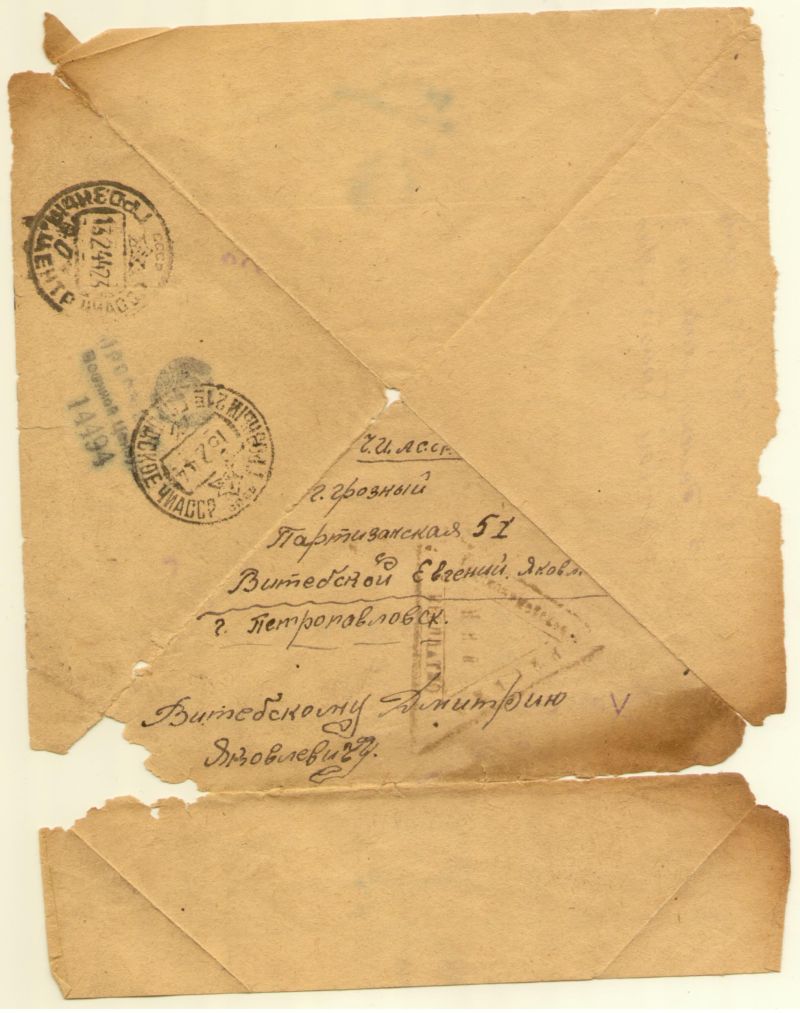 ГРОЗНЫЙ
ЦЕНТР ЧИАССР
СССР
13.2.44.23
Военной Цен
14494
ЧИАССР
Ч.И.АССР.
г. Грозный
Партизанская 51
Витебской Евгений. Яковл.
г. Петропавловск.
Витебскому Дмитрию
Яковлевичу.